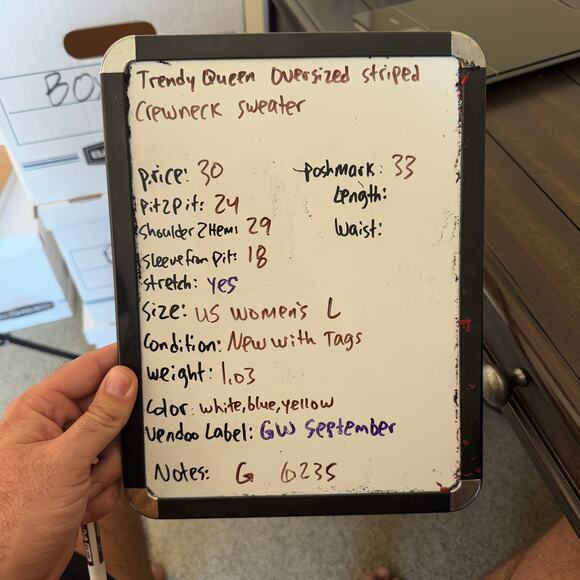 Trendy Queen Oversized striped
Crewneck sweater
price: 30
poshmark: 33
Pit2Pit: 24
Length:
Shoulder2Hem: 29
Waist:
Sleeve from Pit: 18
stretch: yes
Size: US Women's L
Condition: New with Tags
weight: 1.03
Color: white, blue, yellow
Vendoo Label: GW September
Notes: G 6235
BO